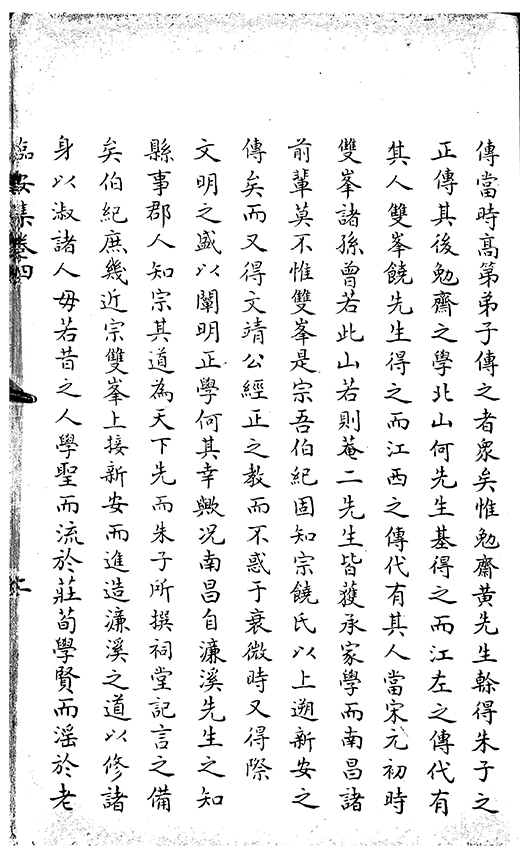 傳當時髙第弟子傳之者衆矣惟勉齋黄先生榦得朱子之
正傳其後勉齋之學北山何先生基得之而江左之傳代有
其人雙峯饒先生得之而江西之傳代有其人當宋元初時
雙峯諸孫曾若此山若則菴二先生皆獲承家學而南昌諸
前輩莫不惟雙峯是宗吾伯紀固知宗饒氏以上遡新安之
傳矣而又得文靖公經正之教而不惑于衰微時又得際
文明之盛以闡明正學何其幸歟况南昌自濂溪先生之知
縣事郡人知宗其道為天下先而朱子所撰祠堂記言之備
矣伯紀庶幾近宗雙峯上接新安而進造濂溪之道以修諸
身以淑諸人毋若昔之人學聖而流於莊荀學賢而滛於老
臨安集卷四